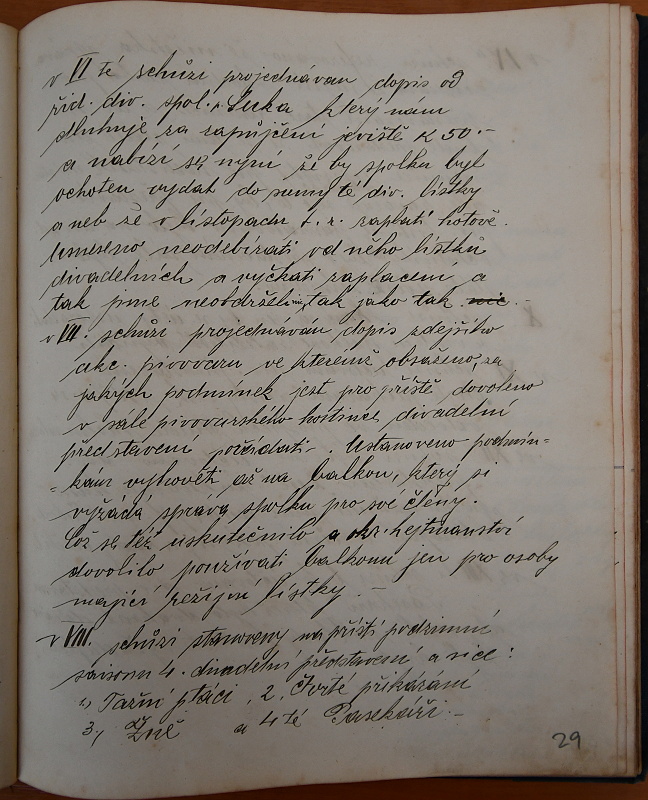 v VI té schůzi projednávan dopis od
řid. div. spol. p. Suka který nám
dluhuje za zapůjčení jeviště K 50.-
a nabízí se nyní že by spolku byl
ochoten vydat do sumy té div. lístky
a neb že v listopadu t. r. zaplatí hotově.
Usneseno neodebírati od něho lístků
divadelních a vyčkati zaplacení a
tak jsme neobdrželi tak jako tak nic.-
v VII. schůzi projednaván dopis zdejšího
akc. pivovaru ve kteremž obsaženo, za
jakých podmínek jest pro příště dovoleno
v sále pivovarského hostince divadelní
představení pořádati-. Ustanoveno podmín=
=kám vyhověti až na balkon, který si
vyžádá správa spolku pro své členy.
Což se též uskutečnilo a okr. hejtmanství
dovolilo používati balkonu jen pro osoby
mající režijní lístky. -
v VIII. schůzi stanoveny na příští podzimní
saisonu 4. divadelní představení a sice:
1, Tažní ptáci, 2. Čtvrté přikázání
3, Žně a 4 té Pasekáři.-
29